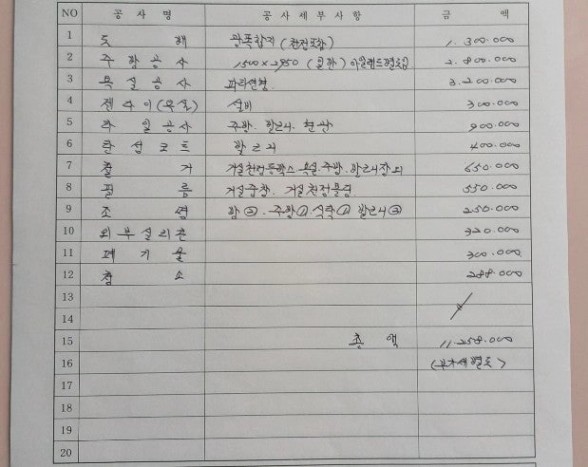 NO 공 사 명 공 사 세 부 사 항 금 액
1 도 배 광폭합지 (천정포함) 1.300.000
2 주 방 공 사 1500 x 2,950 (일판) 아일랜드별도 2.800.000
3 욕 실 공 사 3.200.000
4 젠다이(욕실) 설비 300.000
5 타 일 공 사 주방. 발코니. 현관 900.000
6 탄 성 코 트 발코니 400.000
7 철 거 거실천정등박스 욕실.주방.발코니장 외 650.000
8 필 름 거실천정몰딩 550.000
9 조 명 방③. 주방① 식탁① 발코니③ 250.000
10 외 부 실 리 콘 320.000
11 폐 기 물 300.000
12 청 소 288.000
13
14
15 총 액 11.258.000
16 (부가세별도)
17
18
19
20